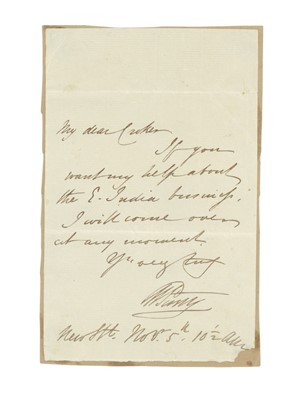 My dear Croker
If you
want my help about
the E. India business,
I will come over
at any moment
Yrs very truly
New St. Nov. 5th 10½ AM